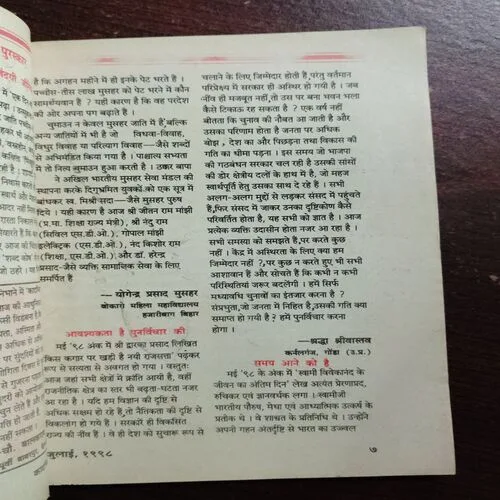 पुरस्कार
है कि अगहन महीने में ही इनके पेट भरते हैं ।
पच्चीस-तीस लाख मुसहर के पेट भरने में कौन
सामर्थ्यवान है ? यही कारण है कि वह परदेश
की ओर अपना पग बढ़ाते हैं ।
चुमाउन न केवल मुसहर जाति में है,बल्कि
अन्य जातियों में भी है जो विधवा-विवाह,
विधुर विवाह या परित्याग विवाह —जैसे शब्दों
से अभिमंडित किया गया है । पाश्चात्य सभ्यता
में तो नित्य चुमाउन हुआ करती हैं । ठक्कर बापा
ने अखिल भारतीय मुसहर सेवा मंडल की
स्थापना करके दिग्भ्रमित युवकों को एक सूत्र में
बांधकर स्व. मिश्री सदा —जैसे मुसहर पुरुष
दिये । यही कारण है आज श्री जीतन राम मांझी
(प्र.मा. शिक्षा राज्य मंत्री), श्री नंदु राम
(सिविल एस.डी.ओ.), गोपाल मांझी
इलेक्ट्रिक (एस.डी.ओ.), नंद किशोर राम
(शिक्षा एस.डी.ओ.) और डॉ. हरेन्द्र
प्रसाद-जैसे व्यक्ति सामाजिक सेवा के लिए
समर्पित हैं
—योगेन्द्र प्रसाद मुसहर
बोकारो महिला महाविद्यालय
हजारीबाग बिहार
आवश्यकता है पुनर्विचार की
मई '९८ अंक में श्री द्वारका प्रसाद लिखित
किस कगार पर खड़ी है नयी राजसत्ता' पढ़कर
रूप से सत्यता से अवगत हो गया । वस्तुतः
आज जहां सभी क्षेत्रों में क्रांति आयी है, वहीं
राजनीतिक क्षेत्र का स्तर भी बढ़ता-घटता नजर
आ रहा है । यदि हम विज्ञान की दृष्टि से
अधिक सक्षम हो रहे हैं, तो नैतिकता की दृष्टि से
विकलांग हो गये हैं । सरकारें ही विकसित
राज्य की नींव हैं । वे ही देश को सुचारू रूप से
चलाने के लिए जिम्मेदार होती हैं,परंतु वर्तमान
परिप्रेक्ष्य में सरकार ही अस्थिर हो गयी है । जब
नींव ही मजबूत नहीं,तो उस पर बना भवन भला
कैसे टिकाऊ रह सकता है ? एक वर्ष नहीं
बीतता कि चुनाव की नौबत आ जाती है और
उसका परिणाम होता है जनता पर अधिक
बोझ , देश का और पिछड़ना तथा विकास की
गति का धीमा पड़ना । इस समय जो भाजपा
की गठबंधन सरकार चल रही है उसकी सांसों
की डोर क्षेत्रीय दलों के हाथ में है, जो महज
स्वार्थपूर्ति हेतु उसका साथ दे रहे हैं । सभी
अलग-अलग मुद्दों से लड़कर संसद में पहुंचते
हैं,फिर संसद में जाकर उनका दृष्टिकोण कैसे
परिवर्तित होता है, यह सभी को ज्ञात है । आज
प्रत्येक व्यक्ति उदासीन होता नजर आ रहा है ।
सभी समस्या को समझते हैं,पर करते कुछ
नहीं । केंद्र में अस्थिरता के लिए क्या हम
जिम्मेदार नहीं ?,पर कुछ न करते हुए भी सभी
आशावान हैं और सोचते हैं कि कभी न कभी
परिस्थितियां जरूर बदलेंगी । हमें सिर्फ
मध्यावधि चुनावों का इंतजार करना है ?
संप्रभुता,जो जनता में निहित है,उसकी गति क्या
समाप्त हो गयी है ? हमें पुनर्विचार करना
होगा ।
—श्रद्धा श्रीवास्तव
कर्नलगंज, गोंडा (उ.प्र.)
समय आने को है
मई '९८ के अंक में 'स्वामी विवेकानंद के
जीवन का अंतिम दिन' लेख अत्यंत प्रेरणाप्रद,
रुचिकर एवं ज्ञानवर्धक लगा । स्वामीजी
भारतीय पौरुष, मेधा एवं आध्यात्मिक उत्कर्ष के
प्रतीक थे । वे शाश्वत के प्रतिनिधि थे । उन्होंने
अपनी गहन अंतर्दृष्टि से भारत का उज्ज्वल
जुलाई, १९९८
७